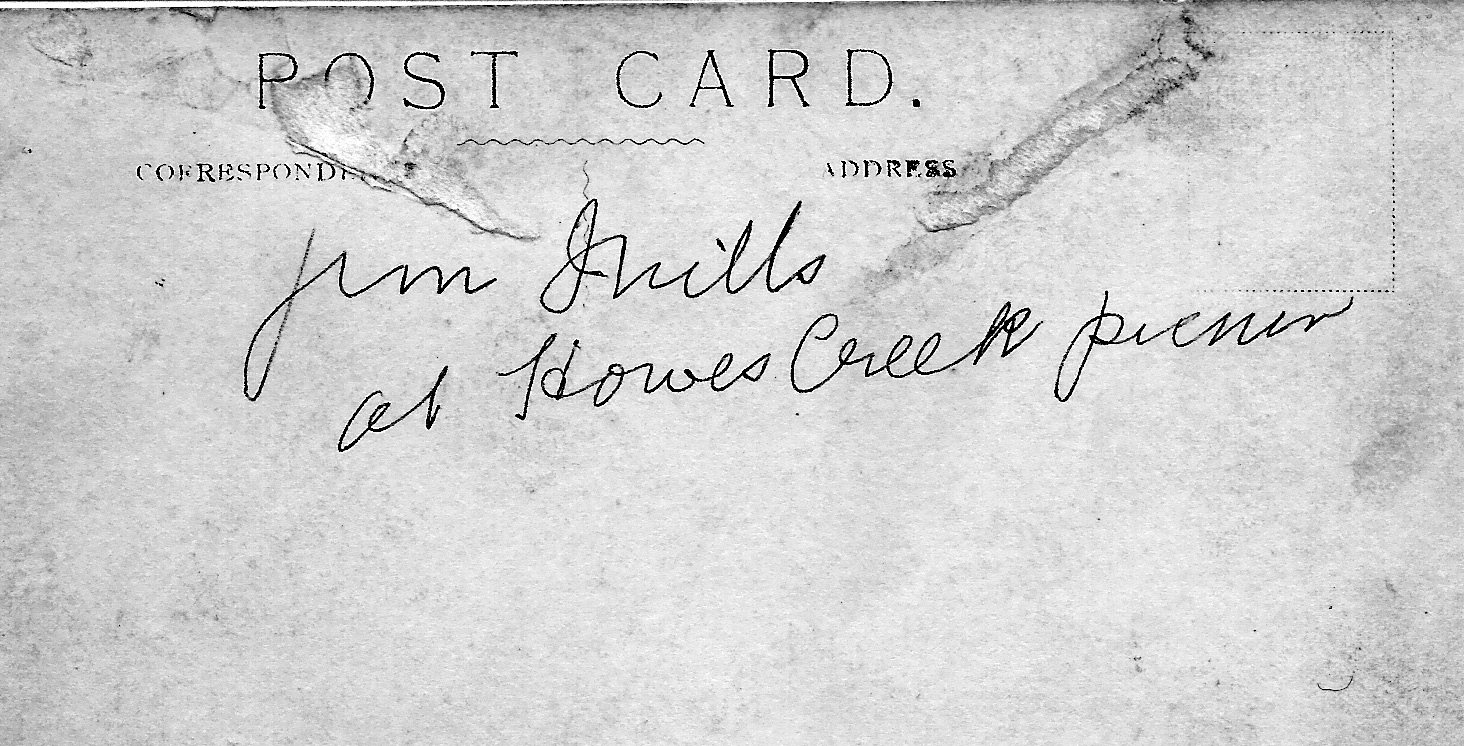 POST CARD.
CORRESPONDE
ADDRESS
Jim Mills
at Howes Creek picnic